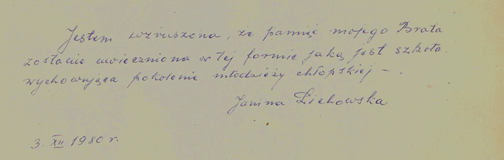 Jestem wzruszona, że pamięć mojego Brata
zostanie uwieczniona w tej formie jaką jest szkoła
wychowująca pokolenie młodzieży chłopskiej –.
Janina Lichowska
3. XII 1980 r.